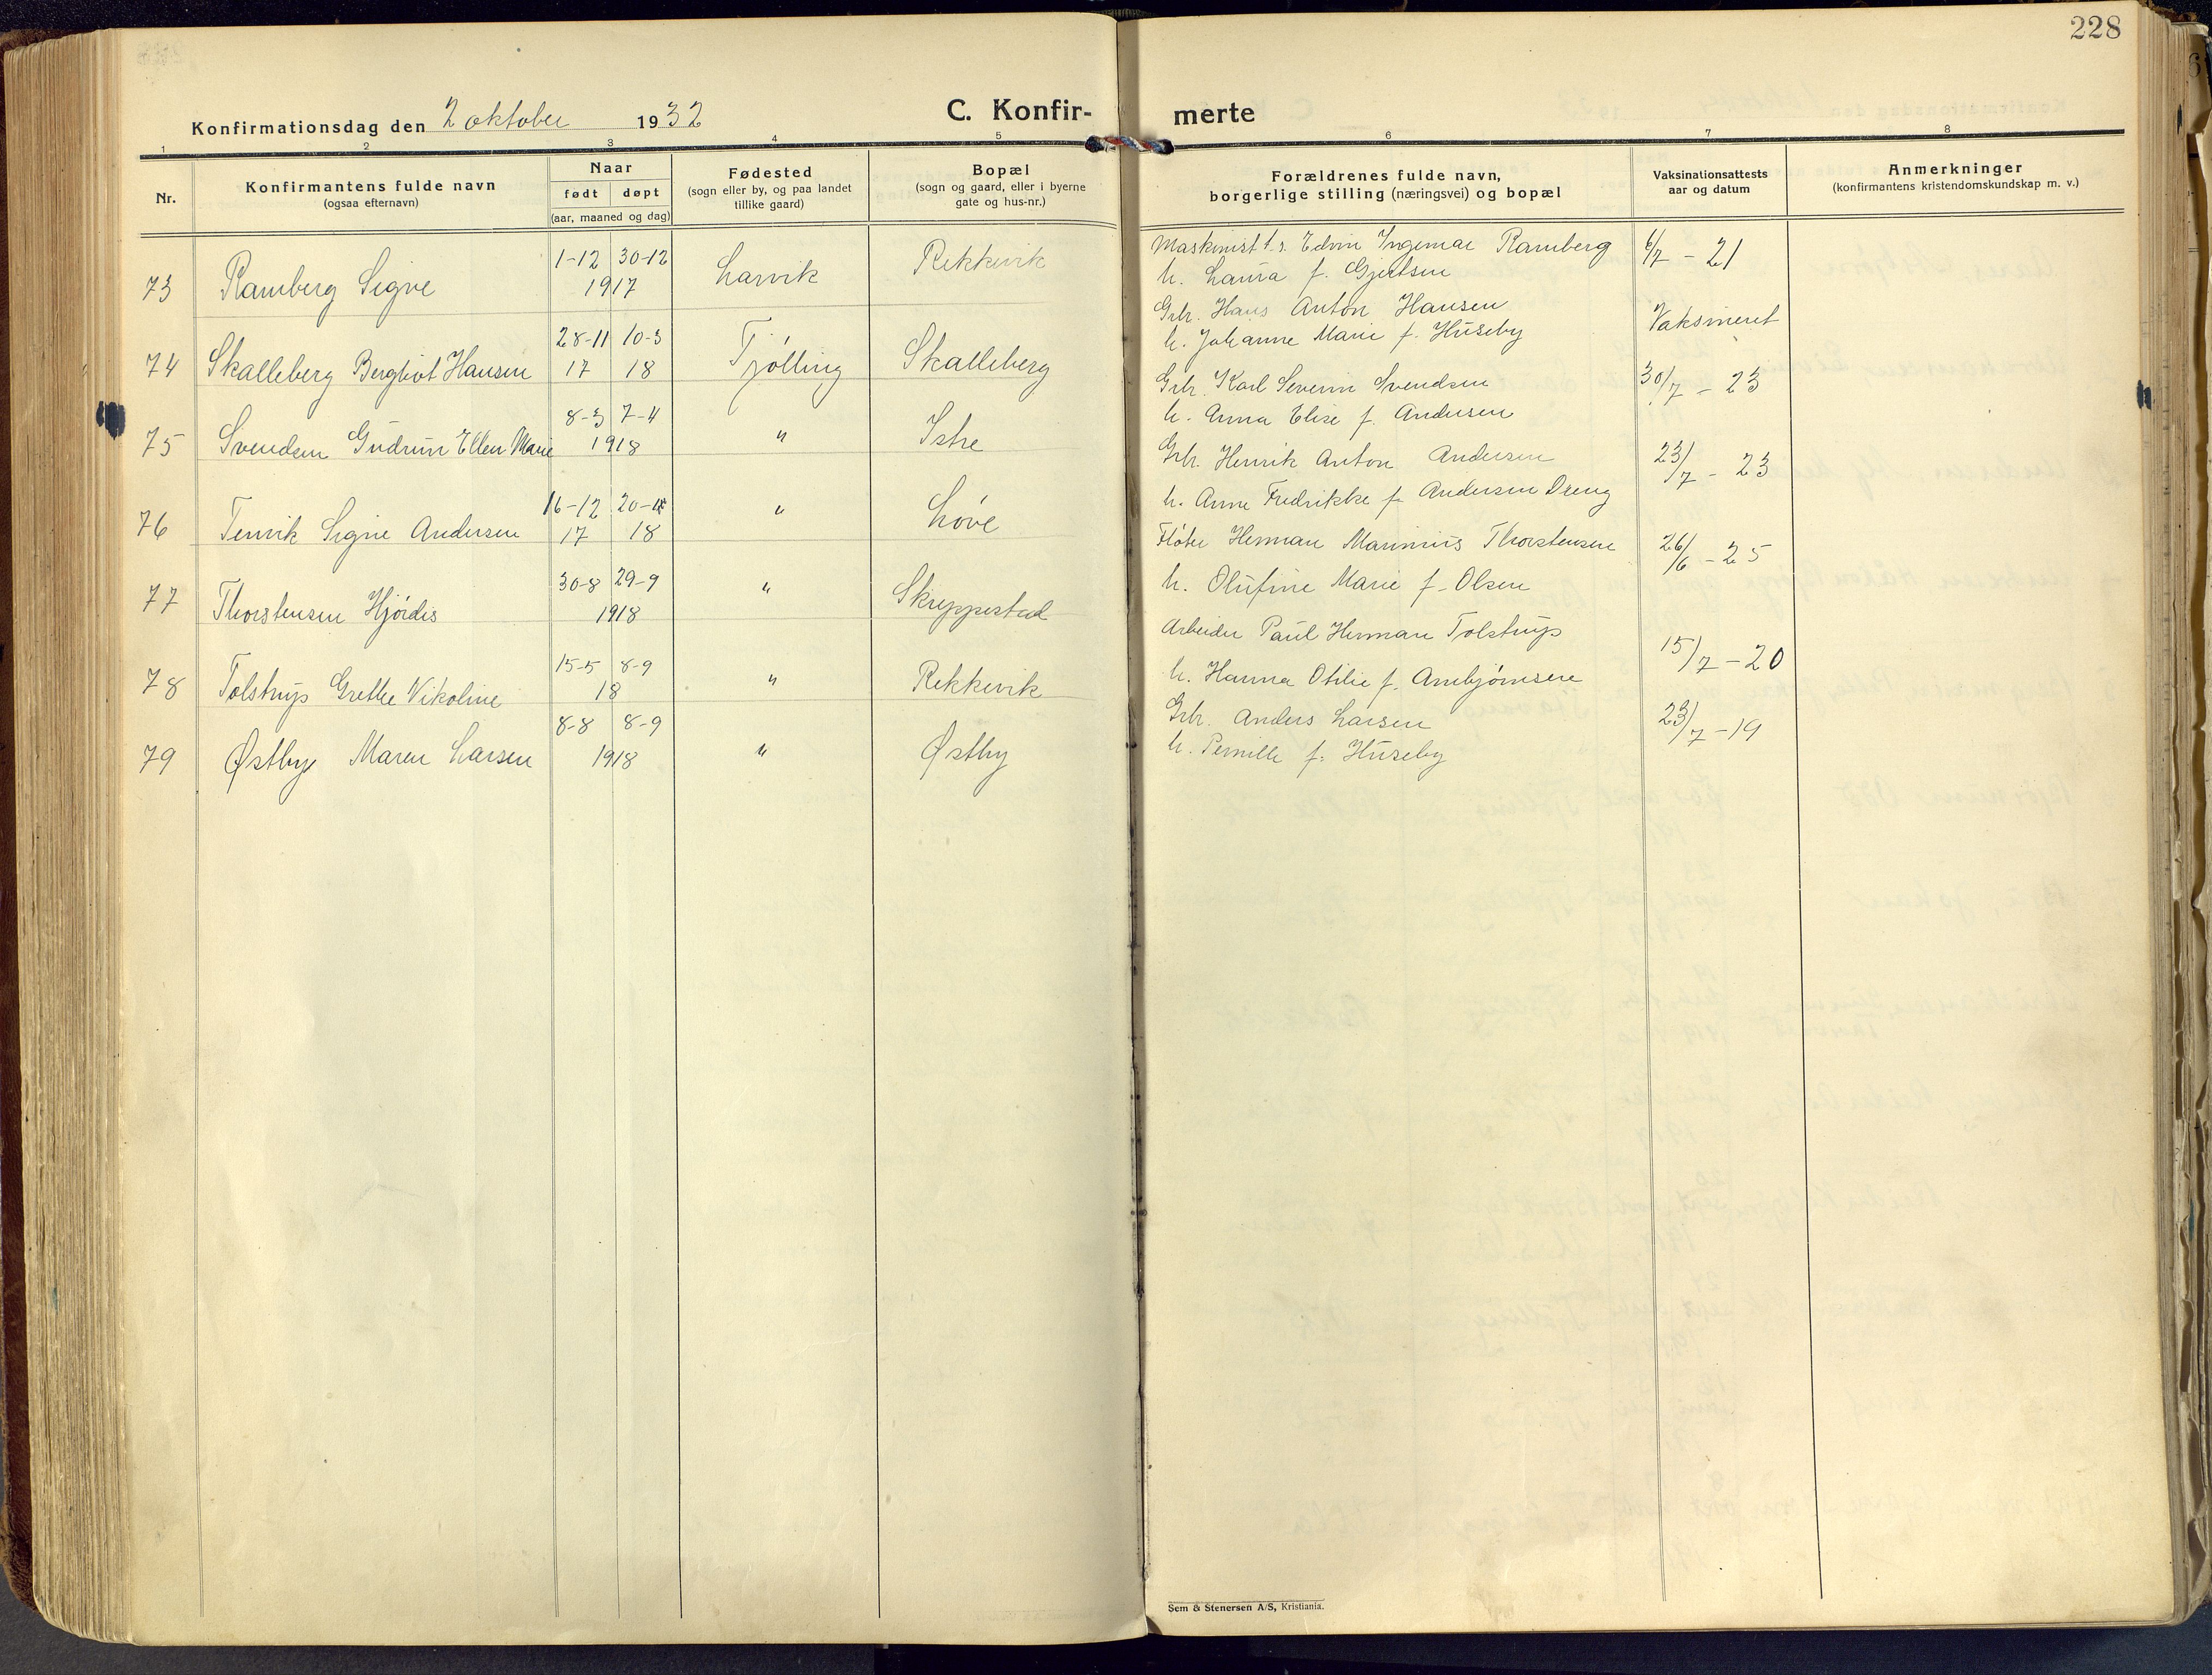 228
Konfirmationsdag den 2 oktober 1932
C. Konfir-
merte
1 2 3 4 5 6 7 8
Nr.
Konfirmantens fulde navn
(ogsaa efternavn)
Naar
født døpt
(aar, maaned og dag)
Fødested
(sogn eller by, og paa landet
tillike gaard)
Bopæl
(sogn og gaard, eller i byerne
gate og hus-nr.)
Forældrenes fulde navn,
borgerlige stilling (næringsvei) og bopæl
Vaksinationsattests
aar og datum
Anmerkninger
(konfirmantens kristendomskundskap m. v.)
1-12 30-12
73 Ramberg Signe 1917 Larvik Rekkevik
Maskinist t.s. Edvin Ingemar Ramberg 6/7 - 21
h. Laura f. Gjertsen
28-11 10-3
74 Skalleberg Bergliot Hansen 17 18 Tjølling Skalleberg
Grbr. Hans Anton Hansen
h. Johanne Marie f. Huseby Vaksineret
8-3 7-4
75 Svendsen Gudrun Ellen Marie 1918 " Istre
Grbr. Karl Severin Svendsen 30/7 - 23
h. Anna Elise f. Andersen
16-12 20-4
76 Tenvik Signe Andersen 17 18 " Løve
Grbr. Henrik Anton Andersen 23/7 - 23
h. Anne Fredrikke f. Andersen Dreng
30-8 29-9
77 Thorstensen Hjørdis 1918 " Skreppestad
Fløter Herman Marinius Thorstensen 26/6 - 25
h. Olufine Marie f. Olsen
15-5 8-9
78 Tolstrup Grethe Nikoline 18 " Rekkevik
Arbeider Paul Herman Tolstrup 15/7 - 20
h. Hanna Otilie f. Arnebjørnsen
8-8 8-9
79 Østbye Maren Larsen 1918 " Østby
Grbr. Anders Larsen 23/7 - 19
h. Pernille f. Huseby
Sem & Stenersen A/S, Kristiania.